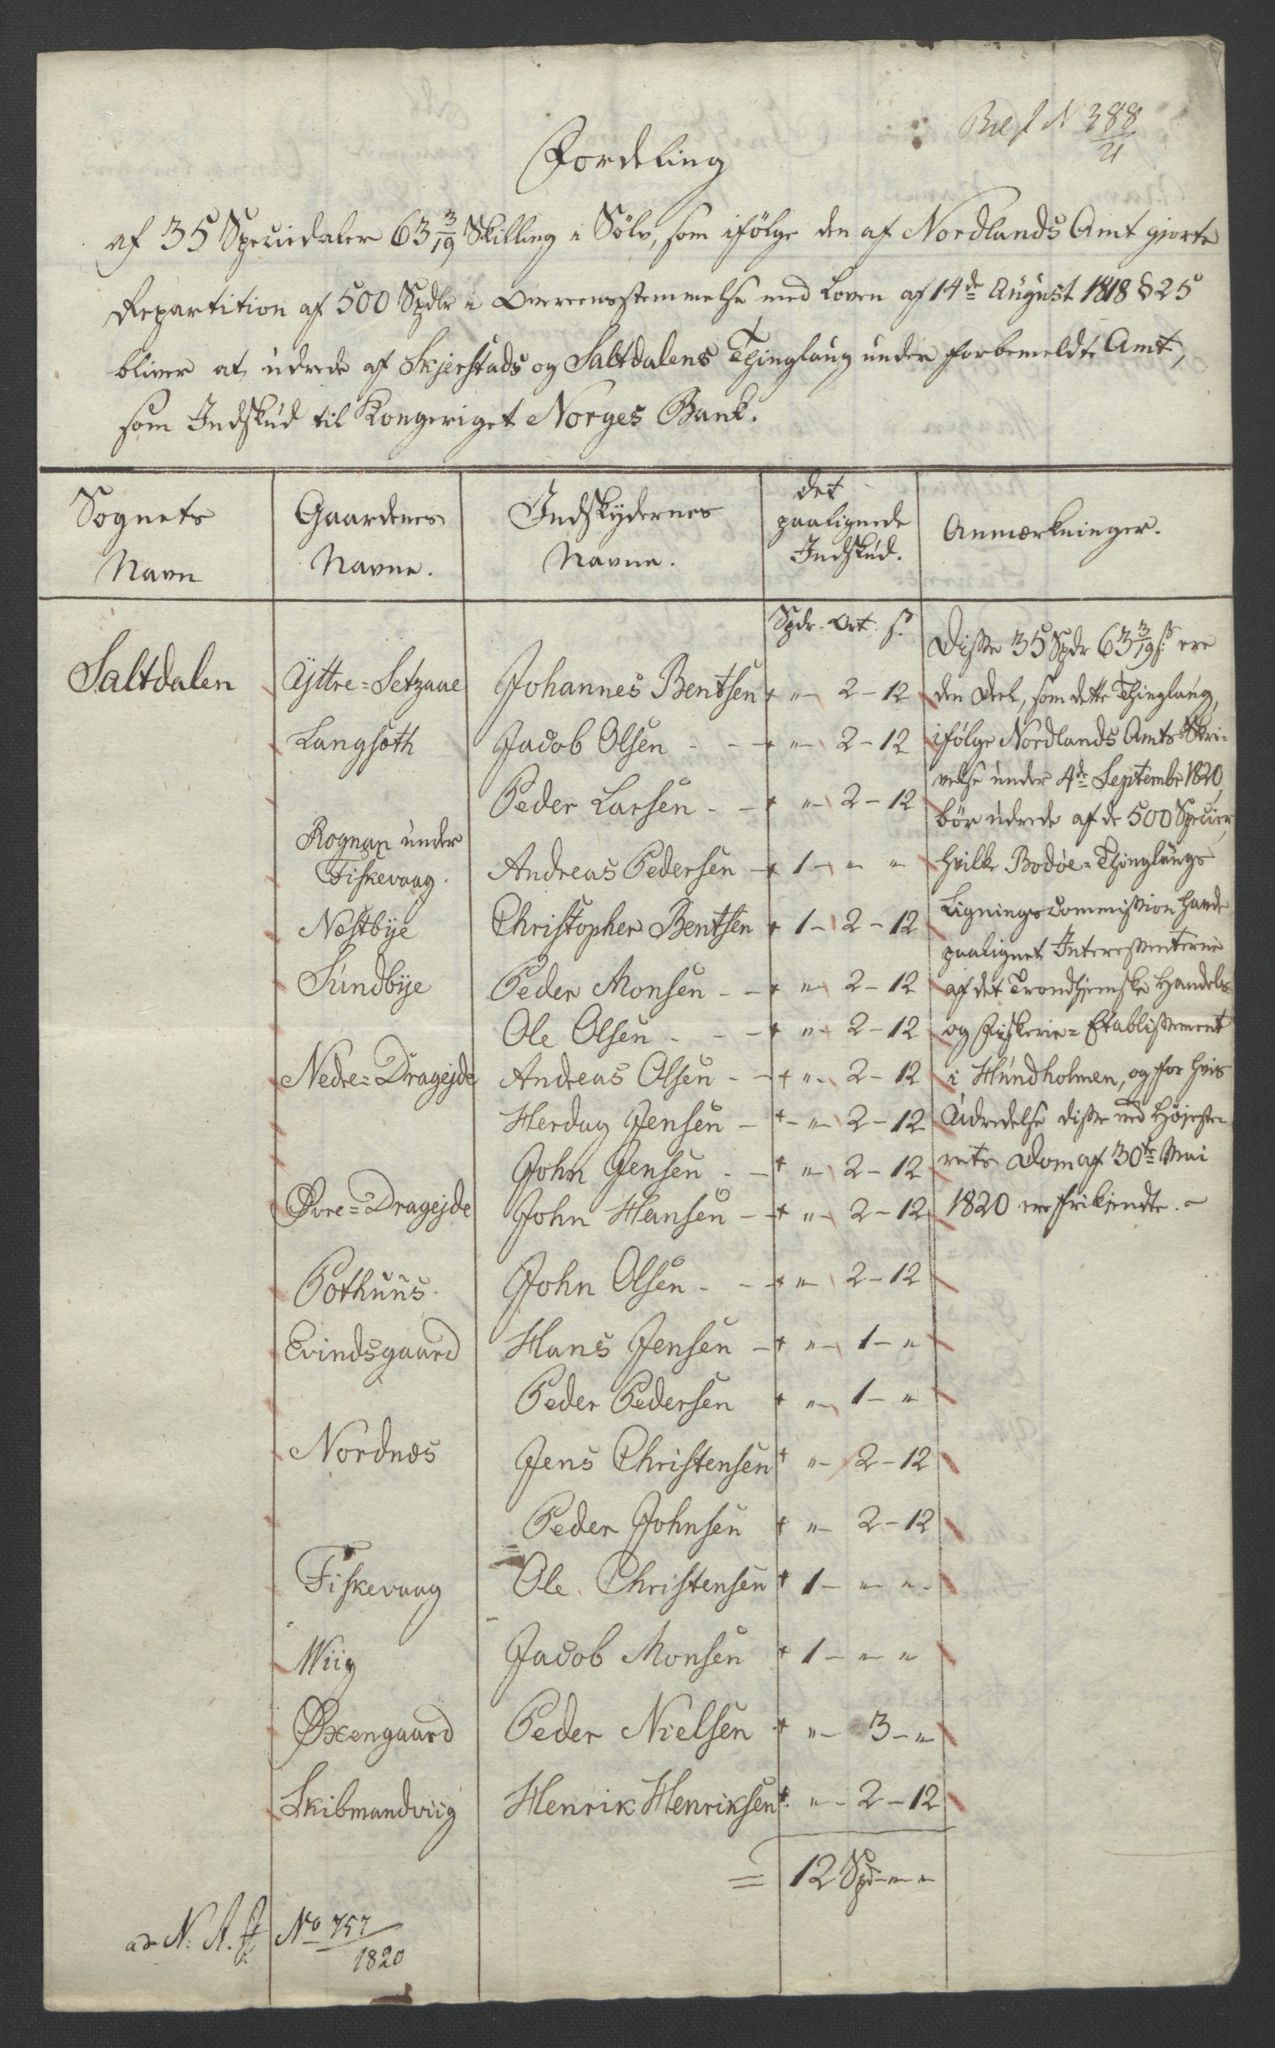 Bil f N 388/21
Fordeling
af 35 Speciedaler 63 3/19 Skilling i Sølv, som ifølge den af Nordlands Amt gjorte
Repartition af 500 Spdlr i Overeensstemmelse med Loven af 14de August 1818 § 25
bliver at udrede af Skjerstads og Saltdalens Thinglaug under forbemeldte Amt,
som Indskud til Kongeriget Norges Bank.
Sognets Navn | Gaardenes Navne. | Indskydernes Navne. | det paalignede Indskud. | Anmærkninger.
Spdr. Ort. s.
Saltdalen | Yttre=Setzaae | Johannes Bentsen | " - 2 - 12
Langsøth | Jacob Olsen | " - 2 - 12
Peder Larsen | " - 2 - 12
Rognan under
Fiskevaag. | Andreas Pedersen | 1 - " - "
Næstbye | Christopher Bentsen | 1 - 2 - 12
Sundbye | Peder Monsen | " - 2 - 12
Ole Olsen | " - 2 - 12
Nedre=Dragejde | Andreas Olsen | " - 2 - 12
Herdag Jensen | " - 2 - 12
John Jensen | " - 2 - 12
Øvre=Dragejde | John Hansen | " - 2 - 12
Pothuus | John Olsen | " - 2 - 12
Evindsgaard | Hans Jensen | " - 1 - "
Peder Pedersen | " - 1 - "
Nordnæs | Jens Christensen | " - 2 - 12
Peder Johnsen | " - 2 - 12
Fiskevaag | Ole Christensen | 1 - " - "
Wiig | Jacob Monsen | 1 - " - "
Øxengaard | Peder Nielsen | " - 3 - "
Skibmandviig | Henrik Henriksen | " - 2 - 12
= 12 Spd - " - "
Disse 35 Spdr 63 3/19 s ere
den Deel, som dette Thinglaug,
ifølge Nordlands Amts Skri-
velse under 4de Septembr 1820,
bør udrede af de 500 Specier,
hvilke Bodøe=Thinglaugs
Ligningscommission havde
paalignet Interessenterne
af det Trondhjemske Handels
og Fiskerie=Etablissement
i Hundholmen, og for hvis
Udredelse disse ved Højeste-
rets Dom af 30te Mai
1820 ere frikjendte. -
ad N. A. J. No 757/1820